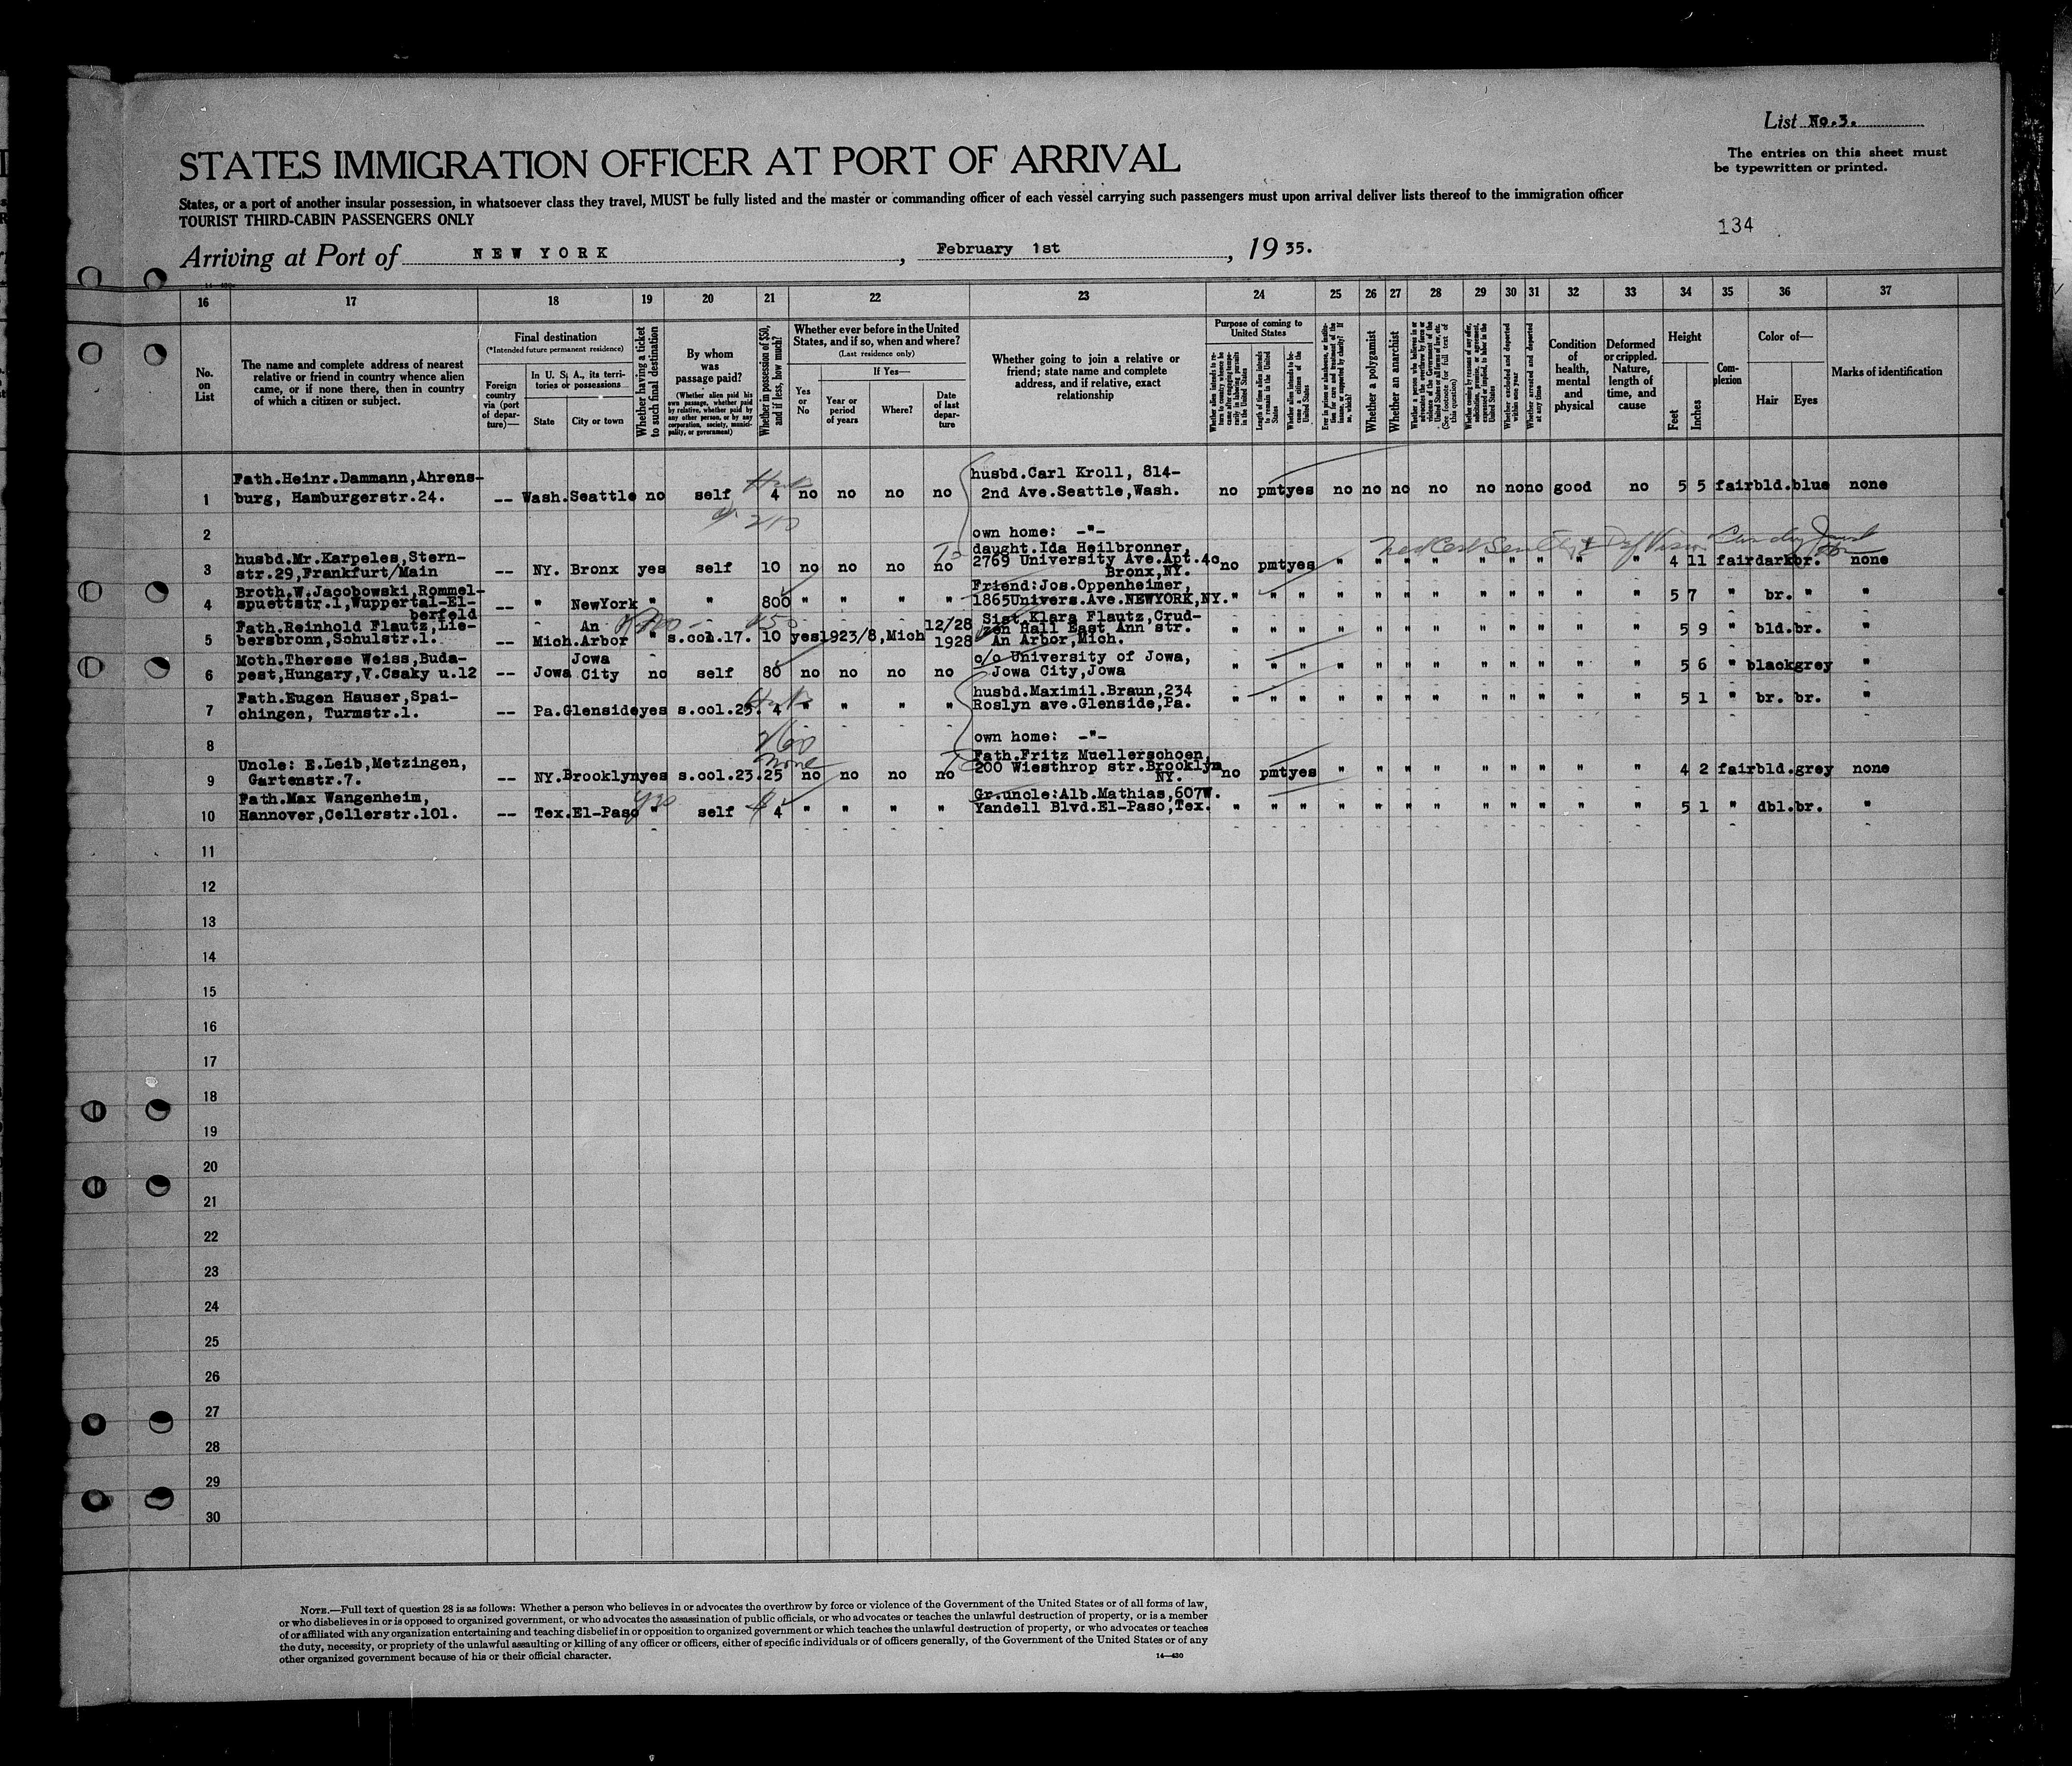 List No.3.
The entries on this sheet must
be typewritten or printed.
STATES IMMIGRATION OFFICER AT PORT OF ARRIVAL
States, or a port of another insular possession, in whatsoever class they travel, MUST be fully listed and the master or commanding officer of each vessel carrying such passengers must upon arrival deliver lists thereof to the immigration officer
TOURIST THIRD-CABIN PASSENGERS ONLY
134
Arriving at Port of NEW YORK, February 1st, 19 35.
16 17 18 19 20 21 22 23 24 25 26 27 28 29 30 31 32 33 34 35 36 37
No. on List
The name and complete address of nearest
relative or friend in country whence alien
came, or if none there, then in country
of which a citizen or subject.
Final destination
(*Intended future permanent residence)
Foreign country via (port of departure)—
In U. S. A., its territories or possessions
State
City or town
Whether having a ticket to such final destination
By whom was passage paid?
(Whether alien paid his own passage, whether paid by relative, whether paid by any other person, or by any corporation, society, municipality, or government)
Whether in possession of $50, and if less, how much?
Whether ever before in the United
States, and if so, when and where?
(Last residence only)
Yes or No
If Yes—
Year or period of years
Where?
Date of last departure
Whether going to join a relative or
friend; state name and complete
address, and if relative, exact
relationship
Purpose of coming to United States
Whether a polygamist
Whether an anarchist
Condition of health, mental and physical
Deformed or crippled. Nature, length of time, and cause
Height
Feet
Inches
Complexion
Color of—
Hair
Eyes
Marks of identification
Fath.Heinr.Dammann,Ahrens- husbd.Carl Kroll, 814-
1 burg, Hamburgerstr.24. -- Wash.Seattle no self 4 no no no no 2nd Ave.Seattle,Wash. no pmt yes no no no no no no no good no 5 5 fair bld.blue none
2 own home: -"-
husbd.Mr.Karpeles,Stern- daught.Ida Heilbronner,
3 str.29,Frankfurt/Main -- NY. Bronx yes self 10 no no no no 2769 University Ave.Apt.4c no pmt yes " " " " " " " " " 4 11 fair dark br. none
Bronx,NY.
Broth.W.Jacobowski,Rommel- Friend:Jos.Oppenheimer,
4 spuettstr.1,Wuppertal-El- -- " NewYork " " 800 " " " " 1865Univers.Ave.NEWYORK,NY. " " " " " " " " " " " " 5 7 " br. " "
berfeld
Fath.Reinhold Flautz,Lie- An 12/28 Sist.Klara Flautz,Crud-
5 bersbronn,Schulstr.1. -- Mich.Arbor " s.col.17. 10 yes 1923/8,Mich 1928 zen Hall East Ann str. " " " " " " " " " " " " 5 9 " bld.br. "
An Arbor,Mich.
Moth.Therese Weiss,Buda- Jowa c/o University of Jowa,
6 pest,Hungary,V.Csaky u.12 -- Jowa City no self 80 no no no no Jowa City,Jowa " " " " " " " " " " " " 5 6 " black grey "
Fath.Eugen Hauser,Spai- husbd.Maximil.Braun,234
7 chingen, Turmstr.1. -- Pa.Glenside yes s.col.25. 4 " " " " Roslyn ave.Glenside,Pa. " " " " " " " " " " " " 5 1 " br. br. "
8 own home: -"-
Uncle: E.Leib,Metzingen, none Fath.Fritz Muellerschoen,
9 Gartenstr.7. -- NY.Brooklyn yes s.col.23. 25 no no no no 200 Wiesthrop str.Brooklyn no pmt yes " " " " " " " " " 4 2 fair bld.grey none
NY.
Fath.Max Wangenheim, Gr.uncle:Alb.Mathias,607W.
10 Hannover,Cellerstr.101. -- Tex.El-Paso " self 4 " " " " Yandell Blvd.El-Paso,Tex. " " " " " " " " " " " " 5 1 " dbl.br. "
11
12
13
14
15
16
17
18
19
20
21
22
23
24
25
26
27
28
29
30
NOTE.—Full text of question 28 is as follows: Whether a person who believes in or advocates the overthrow by force or violence of the Government of the United States or of all forms of law,
or who disbelieves in or is opposed to organized government, or who advocates the assassination of public officials, or who advocates or teaches the unlawful destruction of property, or is a member
of or affiliated with any organization entertaining and teaching disbelief in or opposition to organized government or which teaches the unlawful destruction of property, or who advocates or teaches
the duty, necessity, or propriety of the unlawful assaulting or killing of any officer or officers, either of specific individuals or of officers generally, of the Government of the United States or of any
other organized government because of his or their official character.
14—430